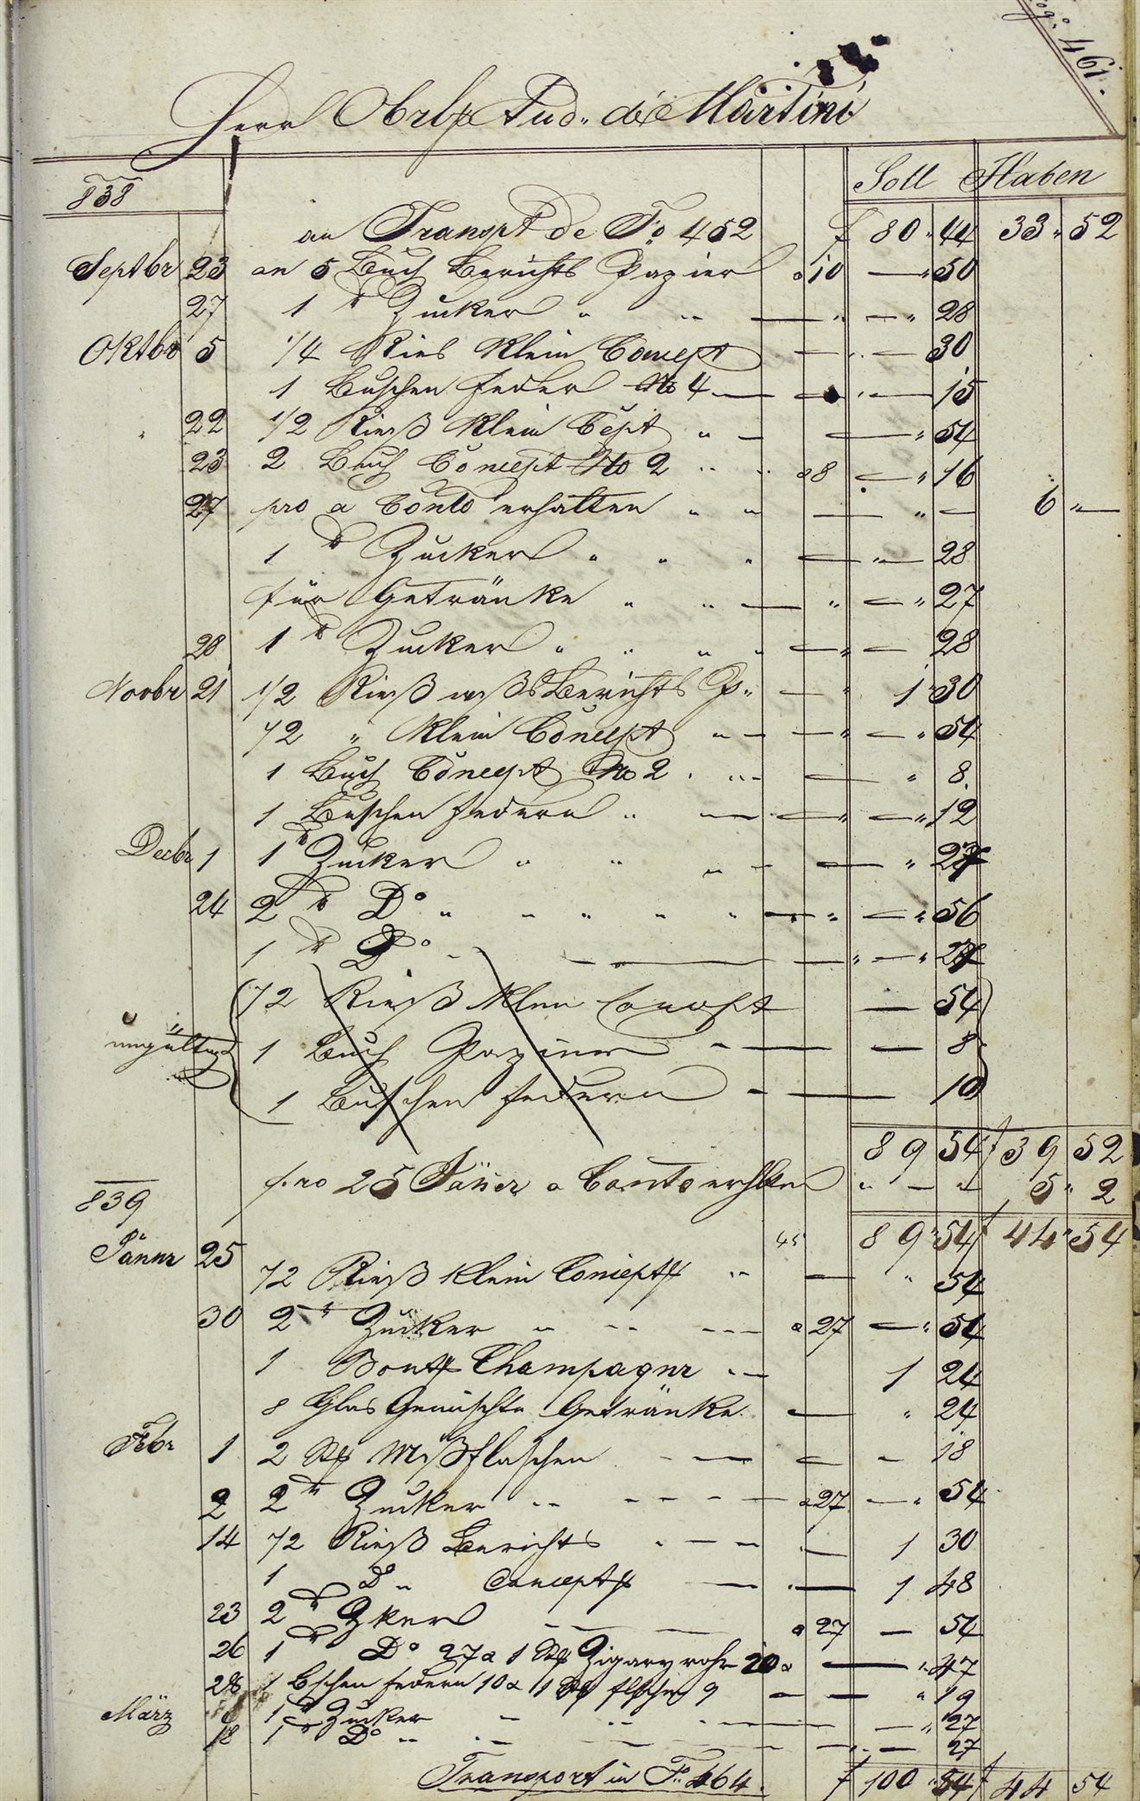 Pag: 461.
Herr Obrlt Aud. de Martini
Soll Haben
838
an Transpt de Fo 452 f 80 " 44 33 " 52
Septbr 23 an 5 Buch Berichts Papier a 10 — " 50
27 1 ℔ Zucker " " — " — " 28
Oktbr 5 1/4 Ries klein Concept — " — 30
1 Buschen Feder No 4 — — " — 15
22 1/2 Rieß klein Cept " — — " 54
23 2 Buch Concept No 2 " " a 8 — " 16
27 pro a Conto erhalten " " — " — 6 " —
1 ℔ Zucker " " " — " — 28
für Getränke " " — " — " 27
28 1 ℔ Zucker " " " " — " — 28
Novbr 21 1/2 Rieß Berichts P. — " 1 30
1/2 " klein Concept " — — " — " 54
1 Buch Concept No 2 " " — — " 8
1 Buschen Federn " — — " — " 12
Decbr 1 1 ℔ Zucker " " " — — " 27
24 2 ℔ Do " " " " " — " — " 56
1 ℔ Do " — — " — "
ungültig 1/2 Rieß klein Concept — 54
1 Buch Papier — — 8
1 Buschen Federn — 10
89 54 f 39 52
pro 25 Jäner a Conto erhlten " — " 5 " 2
839 89 " 54 f 44 " 54
Jänner 25 1/2 Rieß klein Concept " — " 54
30 2 ℔ Zucker " " — a 27 — " 54
1 Bout Champagner " — 1 24
8 Glas Gemischte Getränke — " 24
Febr 1 2 Stk Maßflaschen — — — 18
2 2 ℔ Zucker " — a 27 — " 54
14 1/2 Rieß Berichts " — — 1 30
1 Do " Concept — — 1 48
23 2 ℔ Zker — a 27 — 54
26 1 ℔ Do 27 a 1 Stk Zigarrrohr 20 a — " 47
28 1 Bschen Federn 10 a 1 Stk flsche 9 — — " 19
März 1 ℔ Zucker — " — — " 27
18 1 ℔ Do " — — " — 27
Transport in Fo 464. f 100 " 54 f 44 54